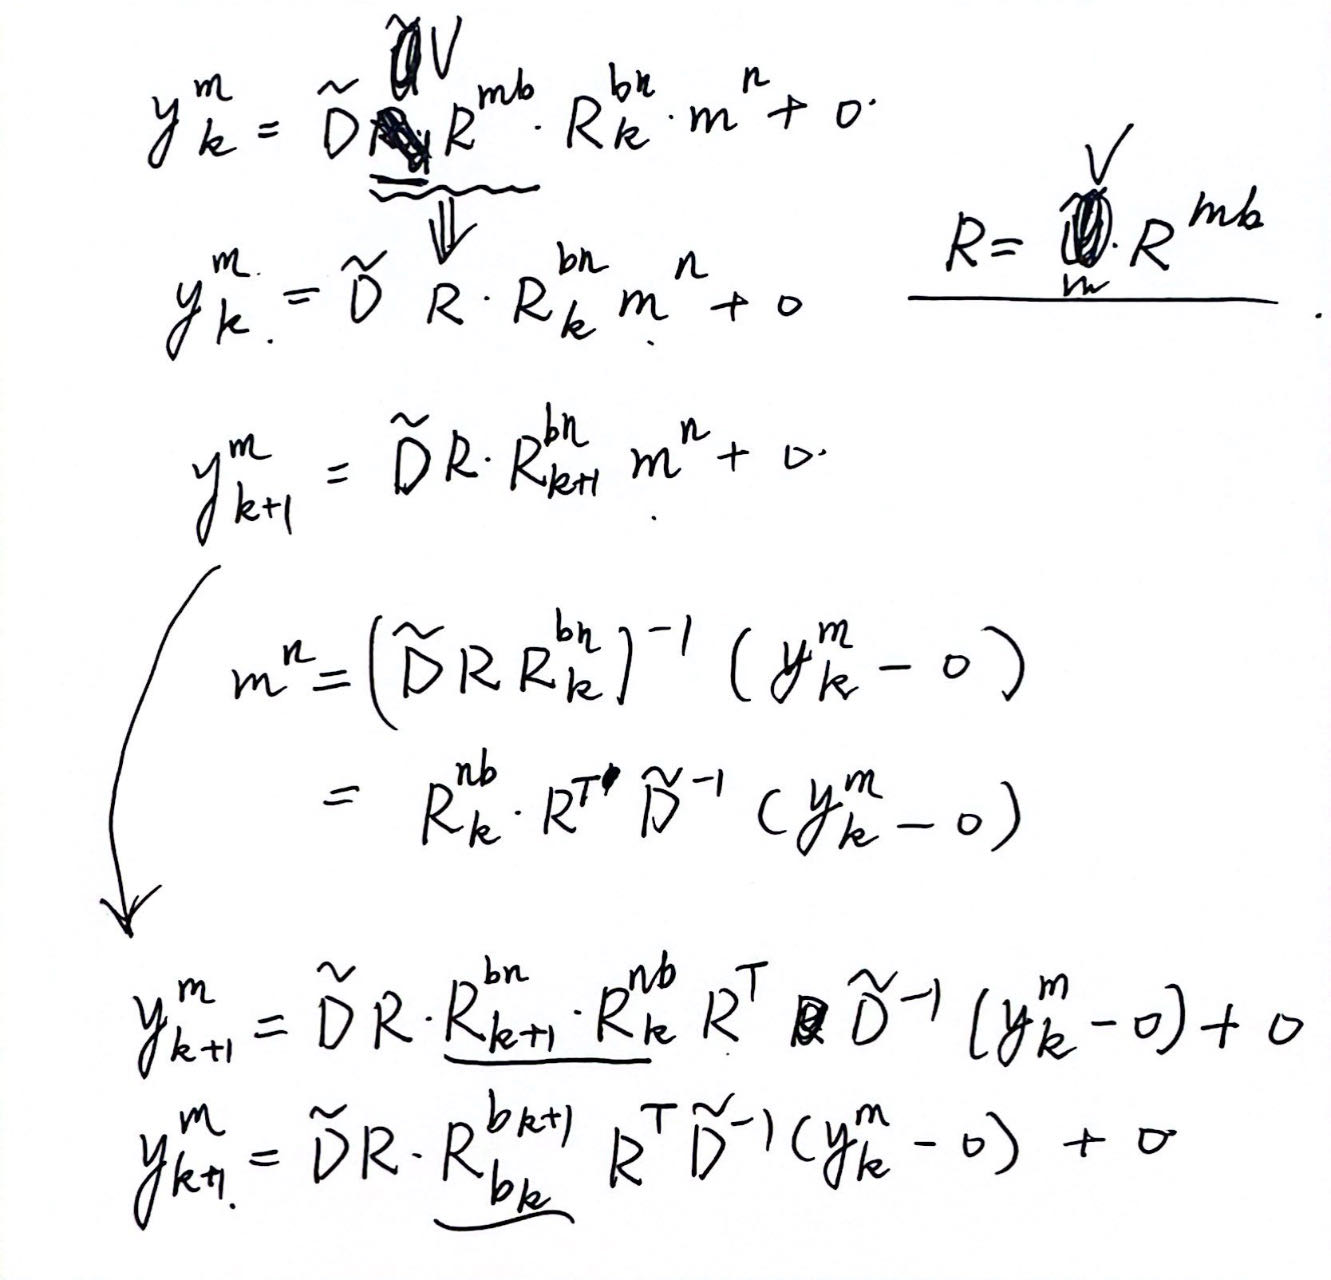 y_k^m = D̃ V R^{mb} · R_k^{bn} · m^n + o
⇓
y_k^m = D̃ R · R_k^{bn} m^n + o
R = V · R^{mb}
y_{k+1}^m = D̃ R · R_{k+1}^{bn} m^n + o
m^n = (D̃ R R_k^{bn})^{-1} (y_k^m - o)
= R_k^{nb} · R^T D̃^{-1} (y_k^m - o)
y_{k+1}^m = D̃ R · R_{k+1}^{bn} · R_k^{nb} R^T D̃^{-1} (y_k^m - o) + o
y_{k+1}^m = D̃ R · R_{b_k}^{b_{k+1}} R^T D̃^{-1} (y_k^m - o) + o